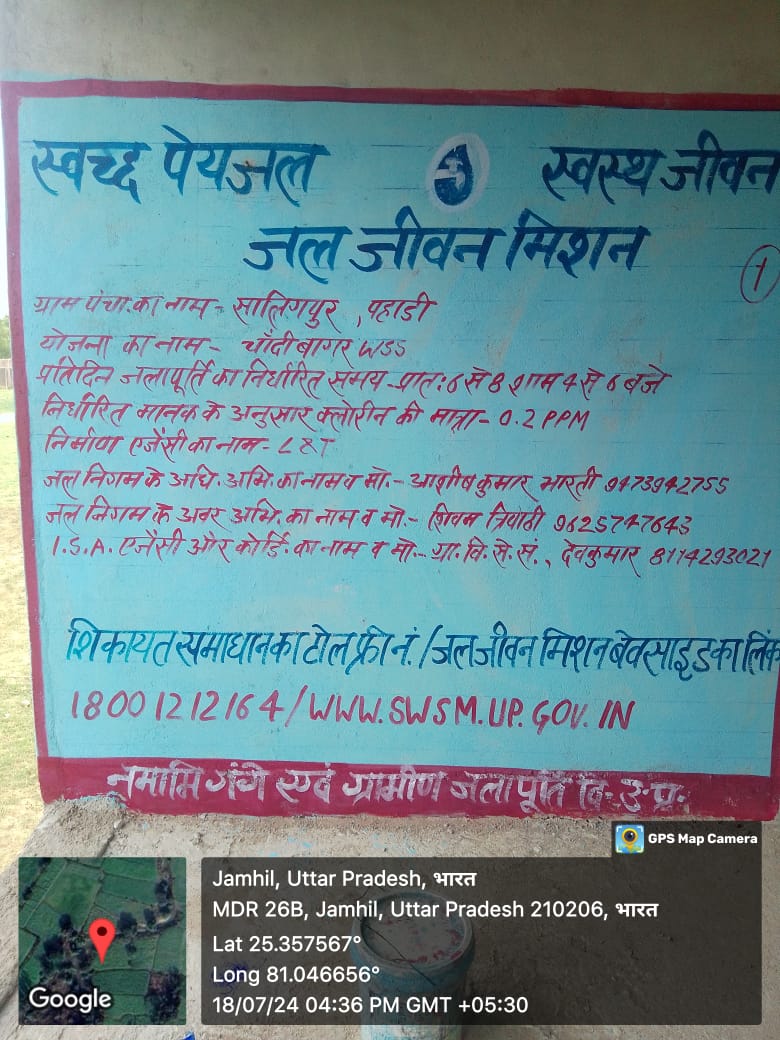 स्वच्छ पेयजल
स्वस्थ जीवन
जल जीवन मिशन
1
ग्राम पंचा. का नाम - सालिगपुर , पहाडी
योजना का नाम - चाँदी बागर WSS
प्रतिदिन जलापूर्ति का निर्धारित समय - प्रात: 6 से 8 शाम 4 से 6 बजे
निर्धारित मानक के अनुसार क्लोरीन की मात्रा - 0.2 PPM
निर्माण एजेंसी का नाम - L&T
जल निगम के अधि. अभि. का नाम व मो. - आशीष कुमार भारती 9473942755
जल निगम के अवर अभि. का नाम व मो. - शिवम त्रिपाठी 9625747643
I.S.A. एजेंसी और कोर्डि. का नाम व मो. - ग्रा. वि. से. सं., देवकुमार 8114293021
शिकायत समाधान का टोल फ्री नं. / जल जीवन मिशन बेवसाइड का लिंक
18001212164 / WWW.SWSM.UP.GOV.IN
नमामि गंगे एवं ग्रामीण जलापूर्ति वि. उ. प्र.
GPS Map Camera
Jamhil, Uttar Pradesh, भारत
MDR 26B, Jamhil, Uttar Pradesh 210206, भारत
Lat 25.357567°
Long 81.046656°
18/07/24 04:36 PM GMT +05:30
Google